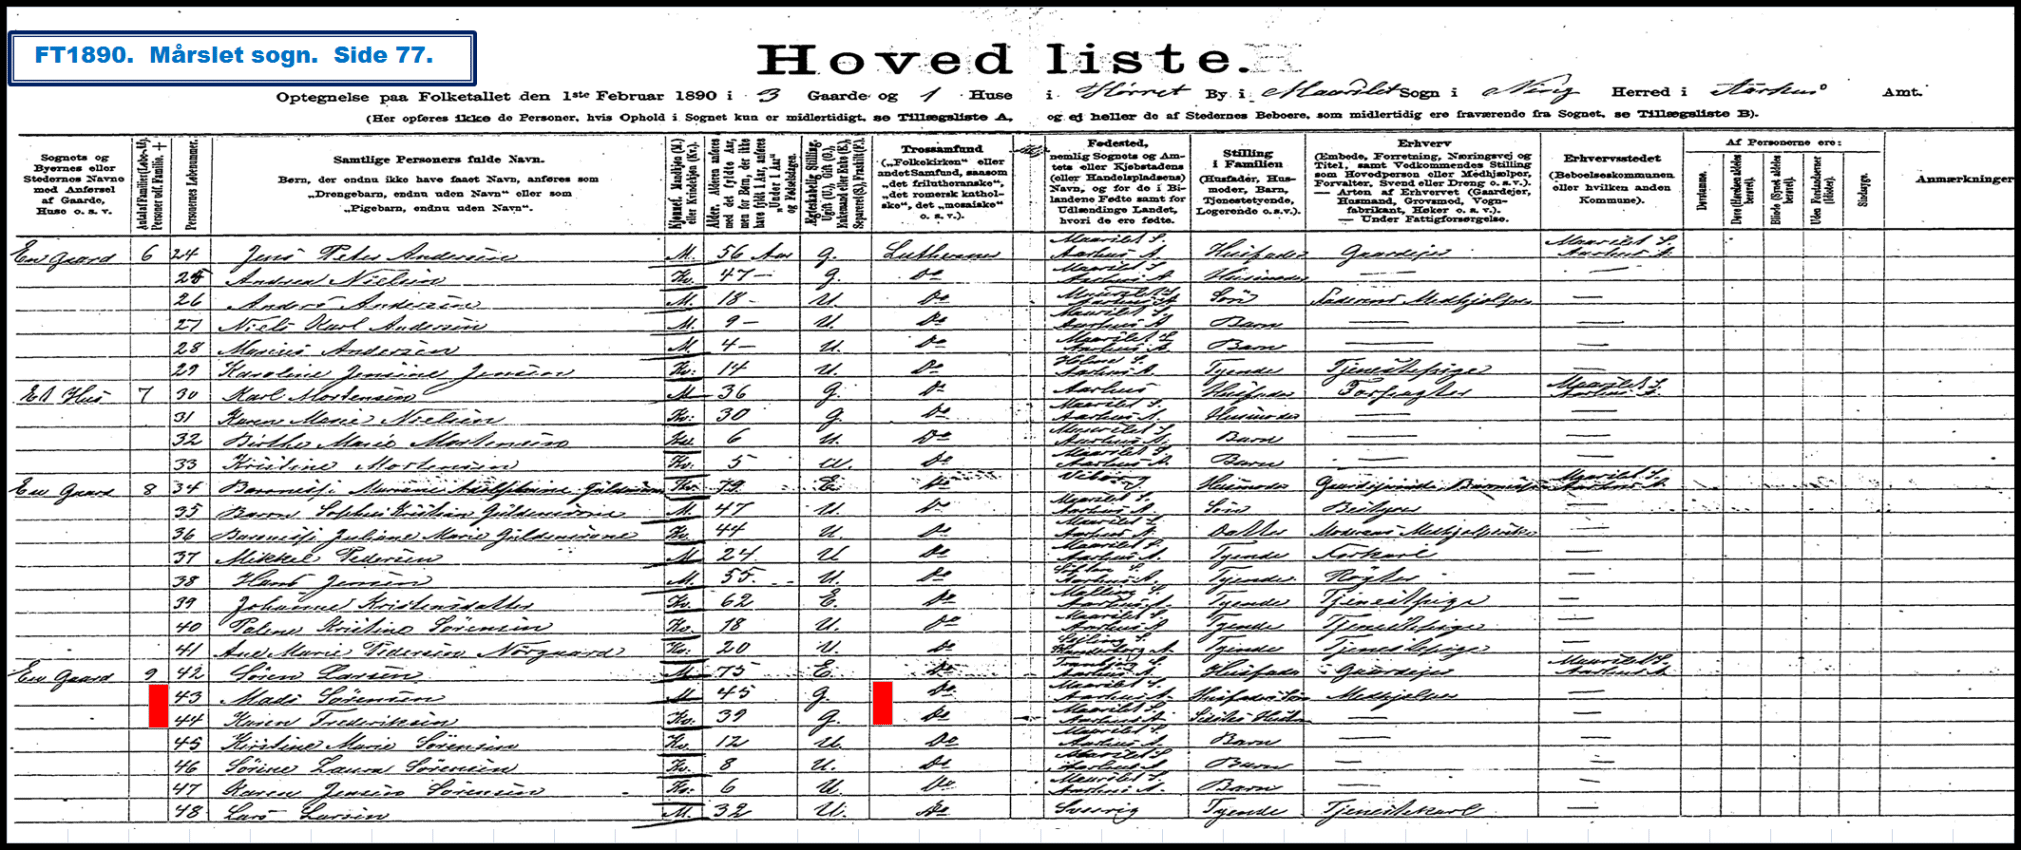 FT1890. Mårslet sogn. Side 77.
Hovedliste.
Optegnelse paa Folketallet den 1ste Februar 1890 i 3 Gaarde og 1 Huse i Hørret By i Maarslet Sogn i Ning Herred i Aarhus Amt.
(Her opføres ikke de Personer, hvis Ophold i Sognet kun er midlertidigt, se Tillægsliste A, og ej heller de af Stedernes Beboere, som midlertidig ere fraværende fra Sognet, se Tillægsliste B).
Sognets og Byernes eller Stedernes Navne med Anførsel af Gaarde, Huse o. s. v.
Personernes Løbenummer.
Samtlige Personers fulde Navn.
Børn, der endnu ikke have faaet Navn, anføres som „Drengebarn, endnu uden Navn" eller som „Pigebarn, endnu uden Navn".
Kjønnet. Mandkjøn (M.) eller Kvindekjøn (Kv.).
Alder. Alderen anføres med det fyldte Aar, men for Børn, der ikke have fyldt 1 Aar, anføres „Under 1 Aar" og Fødselsdagen.
Ægteskabelig Stilling. Ugift (U.), Gift (G.), Enkemand eller Enke (E.), Separeret (S.), Fraskilt (F.).
Trossamfund („Folkekirken" eller andet Samfund, saasom „det frilutheranske", „det romersk katholske", det „mosaiske" o. s. v.).
Fødested, nemlig Sognets og Amtets eller Kjøbstadens (eller Handelspladsens) Navn, og for de i Bilandene Fødte samt for Udlændinge Landet, hvori de ere fødte.
Stilling i Familien (Husfader, Husmoder, Barn, Tjenestetyende, Logerende o. s. v.).
Erhverv (Embede, Forretning, Næringsvej og Titel, samt Vedkommendes Stilling som Hovedperson eller Medhjælper, Forvalter, Svend eller Dreng o. s. v.). — Arten af Erhvervet (Gaardejer, Husmand, Grovsmed, Vognfabrikant, Høker o. s. v.). — Under Fattigforsørgelse.
Erhvervsstedet (Beboelseskommunen eller hvilken anden Kommune).
Af Personerne ere:
Døvstumme.
Døve (Hørelsen aldeles berøvet).
Blinde (Synet aldeles berøvet).
Uden Forstandsevner (Idioter).
Sindssyge.
Anmærkninger
En Gaard 6 24 Jens Peter Andersen M. 56 Aar G. Luthersk Maarslet S. Aarhus A. Husfader Gaardejer Maarslet S. Aarhus A.
25 Andrea Nielsen Kv. 47 — G. Do Maarslet S. Aarhus A. Husmoder — —
26 Anders Andersen M. 18 - U. Do Maarslet S. Aarhus A. Søn Faderens Medhjælper —
27 Niels Karl Andersen M. 9 — U. Do Maarslet S. Aarhus A. Barn — —
28 Marius Andersen M. 4 — U. Do Maarslet S. Aarhus A. Barn — —
29 Karoline Jensine Jensen Kv. 14 U. Do Aarhus A. Tyende Tjenestepige —
Et Hus 7 30 Karl Mortensen M 36 G. Do Aarhus Husfader Forpagter Maarslet S. Aarhus A.
31 Karen Marie Nielsen Kv. 30 G. Do Maarslet S. Aarhus A. Husmoder — —
32 Birthe Marie Mortensen Kv. 6 U. Do Maarslet S. Aarhus A. Barn — —
33 Kristine Mortensen Kv. 5 U. Do Maarslet S. Aarhus A. Barn — —
En Gaard 8 34 Baronesse Mariane Adolphine Güldencrone Kv. 79 E. Do Viborg Husmoder Maarslet S. Aarhus A.
35 Baron Sophus Kristian Güldencrone M. 47 U Do Maarslet S. Aarhus A. Søn Bestyrer —
36 Baronesse Juliane Marie Güldencrone Kv. 44 U. Do Maarslet S. Aarhus A. Datter Moderens —
37 Mikkel Pedersen M 24 U Do Maarslet S. Aarhus A. Tyende —
38 Hans Jensen M. 55 U. Do Aarhus A. Tyende Røgter —
39 Johanne Kristensdatter Kv. 62 E. Do Malling S. Aarhus A. Tyende Tjenestepige —
40 Petrine Kristine Sørensen Kv. 18 U. Do Maarslet S. Aarhus A. Tyende Tjenestepige —
41 Ane Marie Pedersen Nørgaard Kv. 20 U. Do Skanderborg A Tyende Tjenestepige —
En Gaard 9 42 Søren Larsen M 75 E. Do Tranbjerg S. Aarhus A. Husfader Gaardejer Maarslet S. Aarhus A.
43 Mads Sørensen M 45 G. Do Maarslet S. Aarhus A. Husfaders Søn Medhjælper —
44 Karen Frederiksen Kv. 39 G. Do Maarslet S. Aarhus A. Hustru — —
45 Kirstine Marie Sørensen Kv. 12 U. Do Maarslet S. Aarhus A. Barn — —
46 Sørine Laura Sørensen Kv. 8 U. Do Maarslet S. Aarhus A. Barn — —
47 Karen Jensine Sørensen Kv. 6 U. Do Maarslet S. Aarhus A. Barn — —
48 Lars Larsen M. 32 U. Do Sverrig Tyende Tjenestekarl —